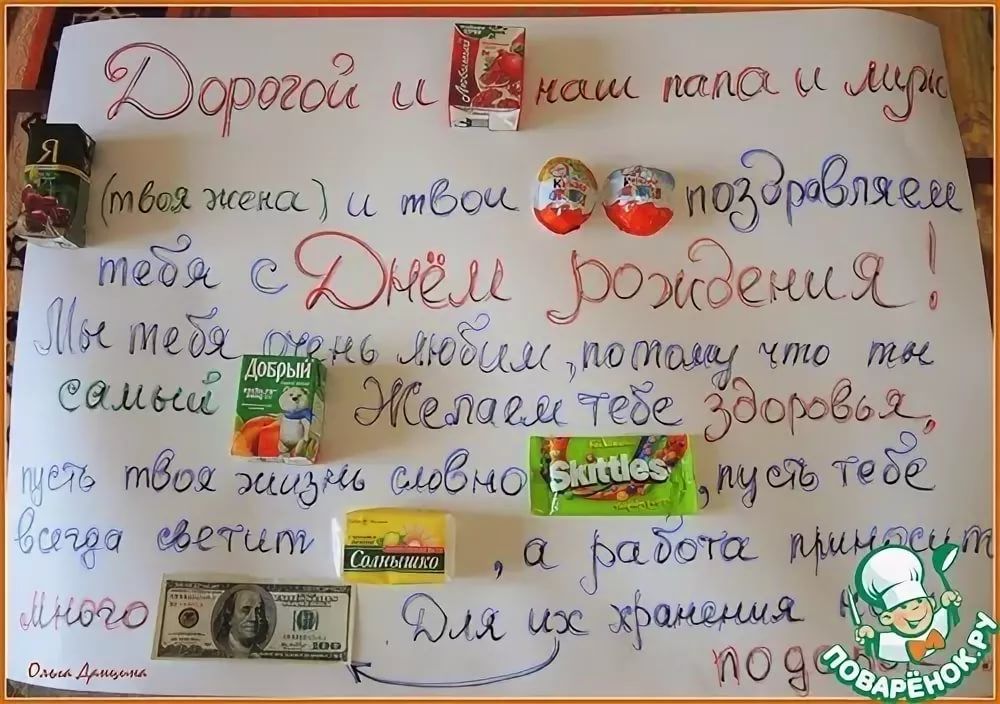 Дорогой и Любимый наш папа и муж
Я (твоя жена) и твои Киндер Киндер поздравляем
тебя с Днём рождения!
Мы тебя очень любим, потому что ты
самый Добрый Желаем тебе здоровья,
пусть твоя жизнь словно Skittles, пусть тебе
всегда светит Солнышко, а работа приносит
много 100 . Для их хранения
Ольга Дрищына
ПОВАРЁНОК.РУ